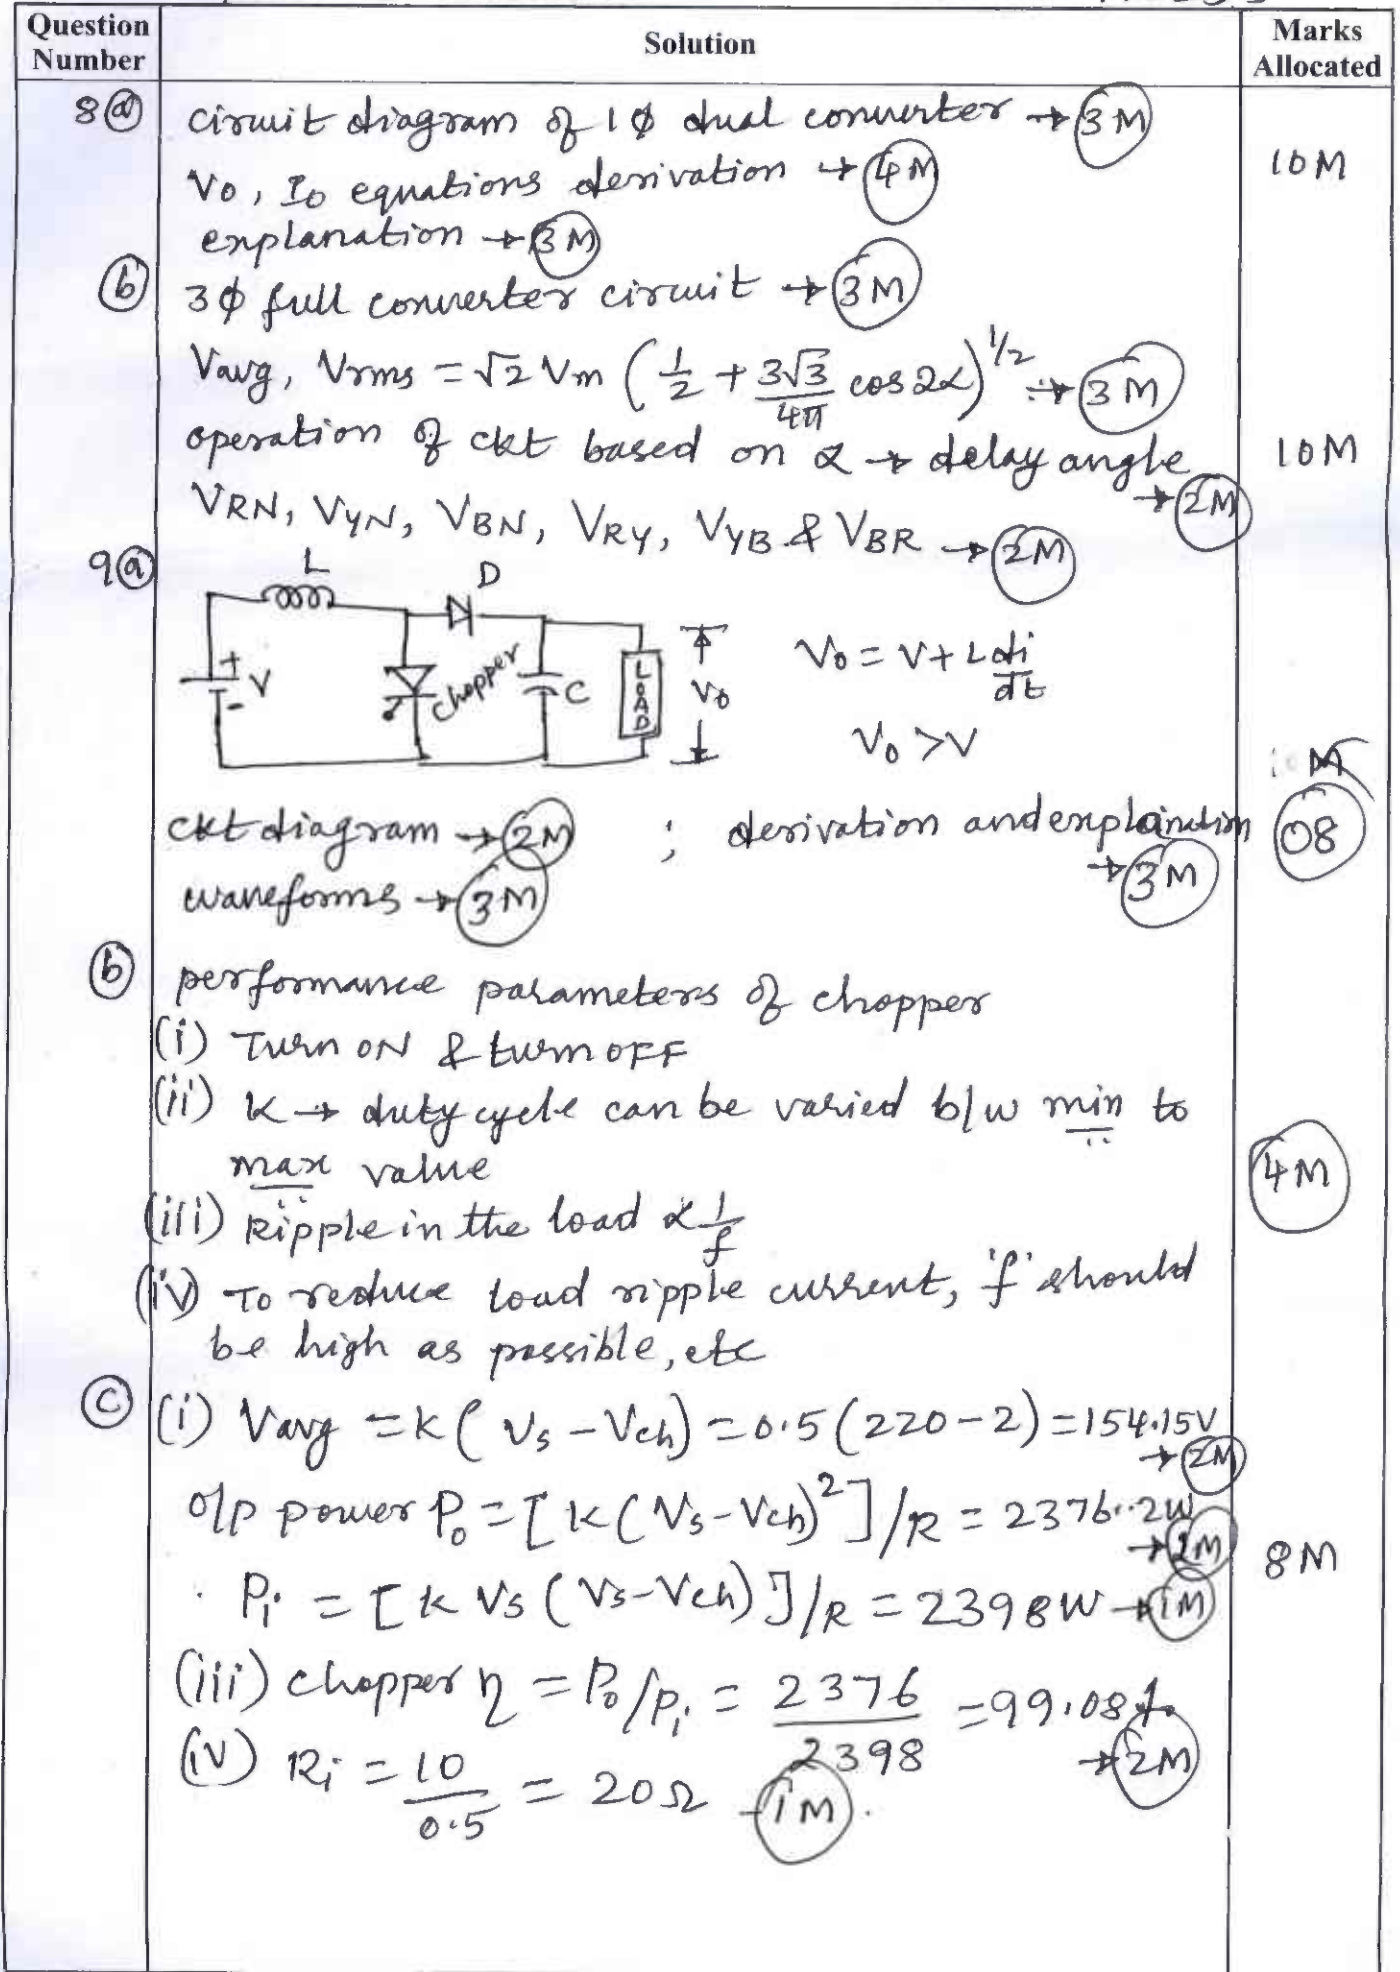 Question Number
Solution
Marks Allocated
8(a) circuit diagram of 1ϕ dual converter → (3M)
10M
Vo, Io equations derivation → (4M)
explanation → (3M)
(b) 3ϕ full converter circuit → (3M)
Vavg, Vrms = √2 Vm (1/2 + 3√3/4π cos 2α)^1/2 → (3M)
operation of ckt based on α → delay angle → (2M)
10M
VRN, VYN, VBN, VRY, VYB & VBR → (2M)
9(a)
L
D
+
-
V
chopper
C
LOAD
Vo
Vo = V + L di/dt
Vo > V
ckt diagram → (2M) ; derivation and explaination → (3M)
(08)
waveforms → (3M)
(b) performance parameters of chopper
(i) Turn ON & turn OFF
(ii) K → duty cycle can be varied b/w min to
max value
(4M)
(iii) Ripple in the load α 1/f
(iv) To reduce load ripple current, 'f' should
be high as possible, etc
(c) (i) Vavg = K (Vs - Vch) = 0.5 (220 - 2) = 154.15V → (2M)
o/p power Po = [K (Vs - Vch)^2] / R = 2376.2W
8M
Pi = [K Vs (Vs - Vch)] / R = 2398W → (1M)
(iii) chopper η = Po/Pi = 2376/2398 = 99.08% → (2M)
(iv) Ri = 10/0.5 = 20Ω - (1M).